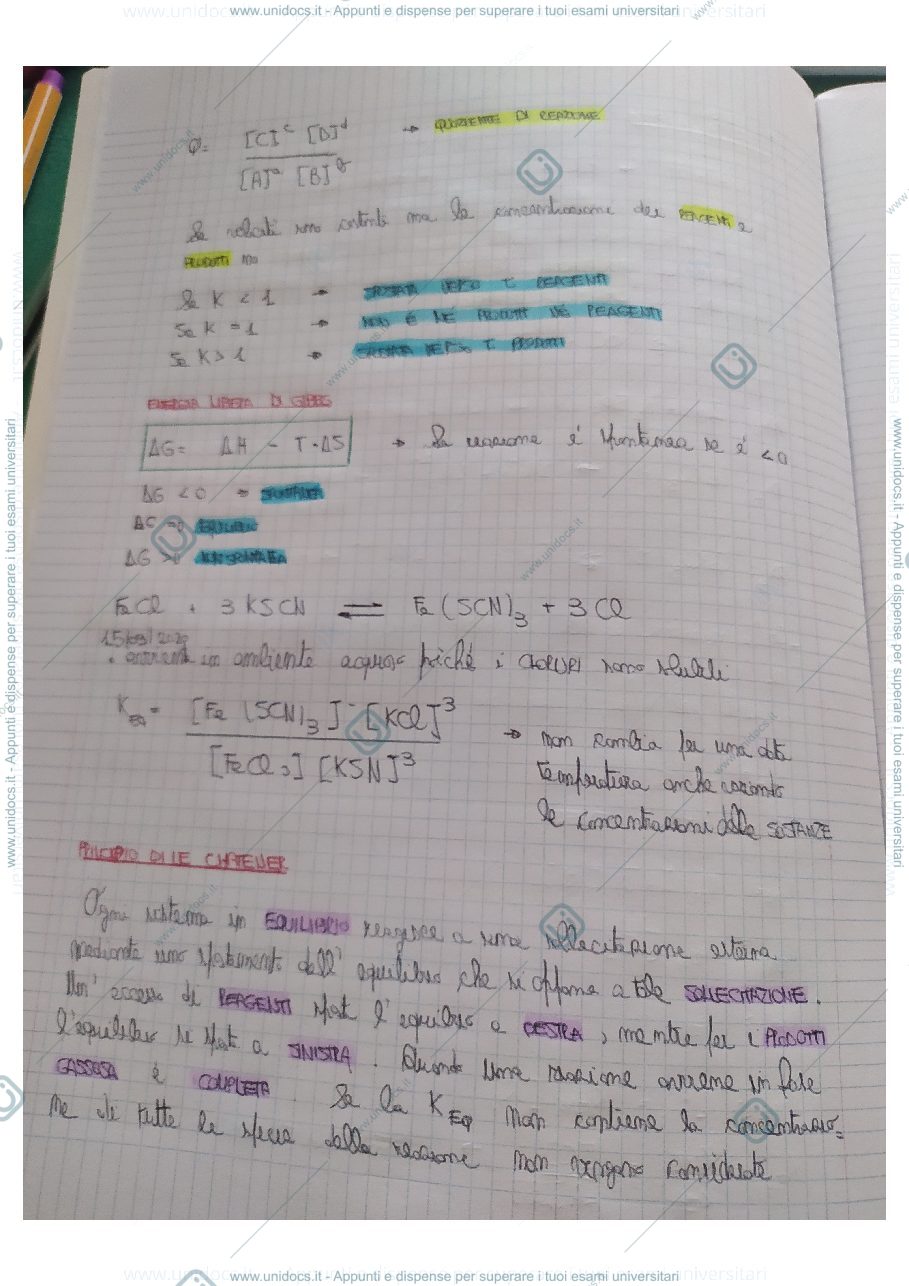 www.unidocs.it - Appunti e dispense per superare i tuoi esami universitari
Q= [C]ᶜ [D]ᵈ → QUOZIENTE DI REAZIONE
[A]ᵃ [B]ᵇ
Le velocità sono costanti ma le concentrazione dei REAGENTI e
PRODOTTI no
Se K < 1 → SPOSTATA VERSO I REAGENTI
Se K = 1 → NON È NE PRODOTTI NE REAGENTI
Se K > 1 → SPOSTATA VERSO I PRODOTTI
ENERGIA LIBERA DI GIBBS
ΔG= ΔH - T·ΔS → La reazione é spontanea se é <0
ΔG <0 → SPONTANEA
ΔG =0 EQUILIBRIO
ΔG >0 NON SPONTANEA
FeCl + 3 KSCN ⇌ Fe (SCN)₃ + 3 Cl
avviene in ambiente acquoso poiché i CLORURI sono solubili
K_EQ = [Fe (SCN)₃]·[KCl]³
[FeCl₃] [KSN]³
→ non cambia per una data
temperatura anche variando
le concentrazioni delle SOSTANZE
PRINCIPIO DI LE CHATELIER
Ogni sistema in EQUILIBRIO reagisce a una sollecitazione esterna
mediante uno spostamento dell' equilibrio che si oppone a tale SOLLECITAZIONE.
Un' eccesso di REAGENTI sposta l' equilibrio a DESTRA, mentre per i PRODOTTI
l'equilibrio si sposta a SINISTRA. Quando una reazione avviene in fase
GASSOSA è COMPLETA. Se la K_EQ non contiene la concentrazio=
ne di tutte le specie della reazione non vengono considerate
www.unidocs.it - Appunti e dispense per superare i tuoi esami universitari